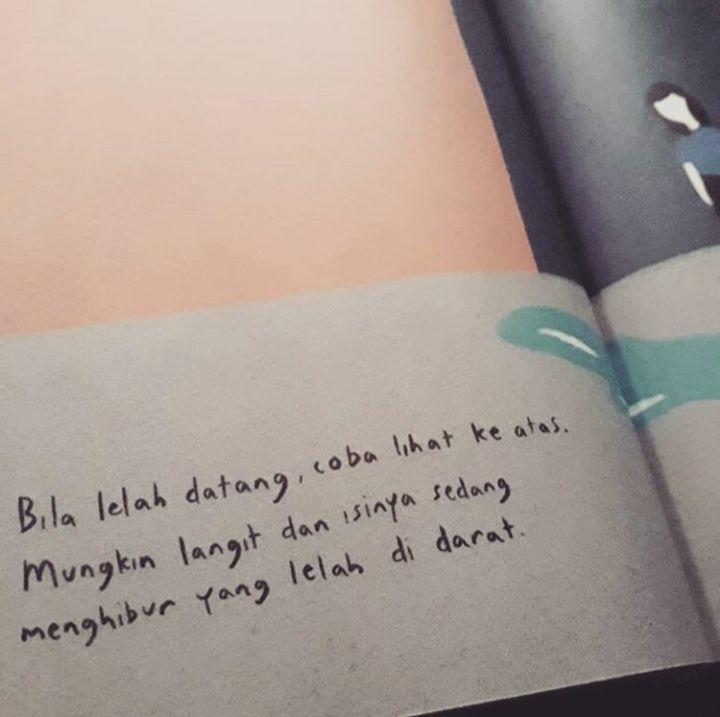 Bila lelah datang, coba lihat ke atas.
Mungkin langit dan isinya sedang
menghibur yang lelah di darat.